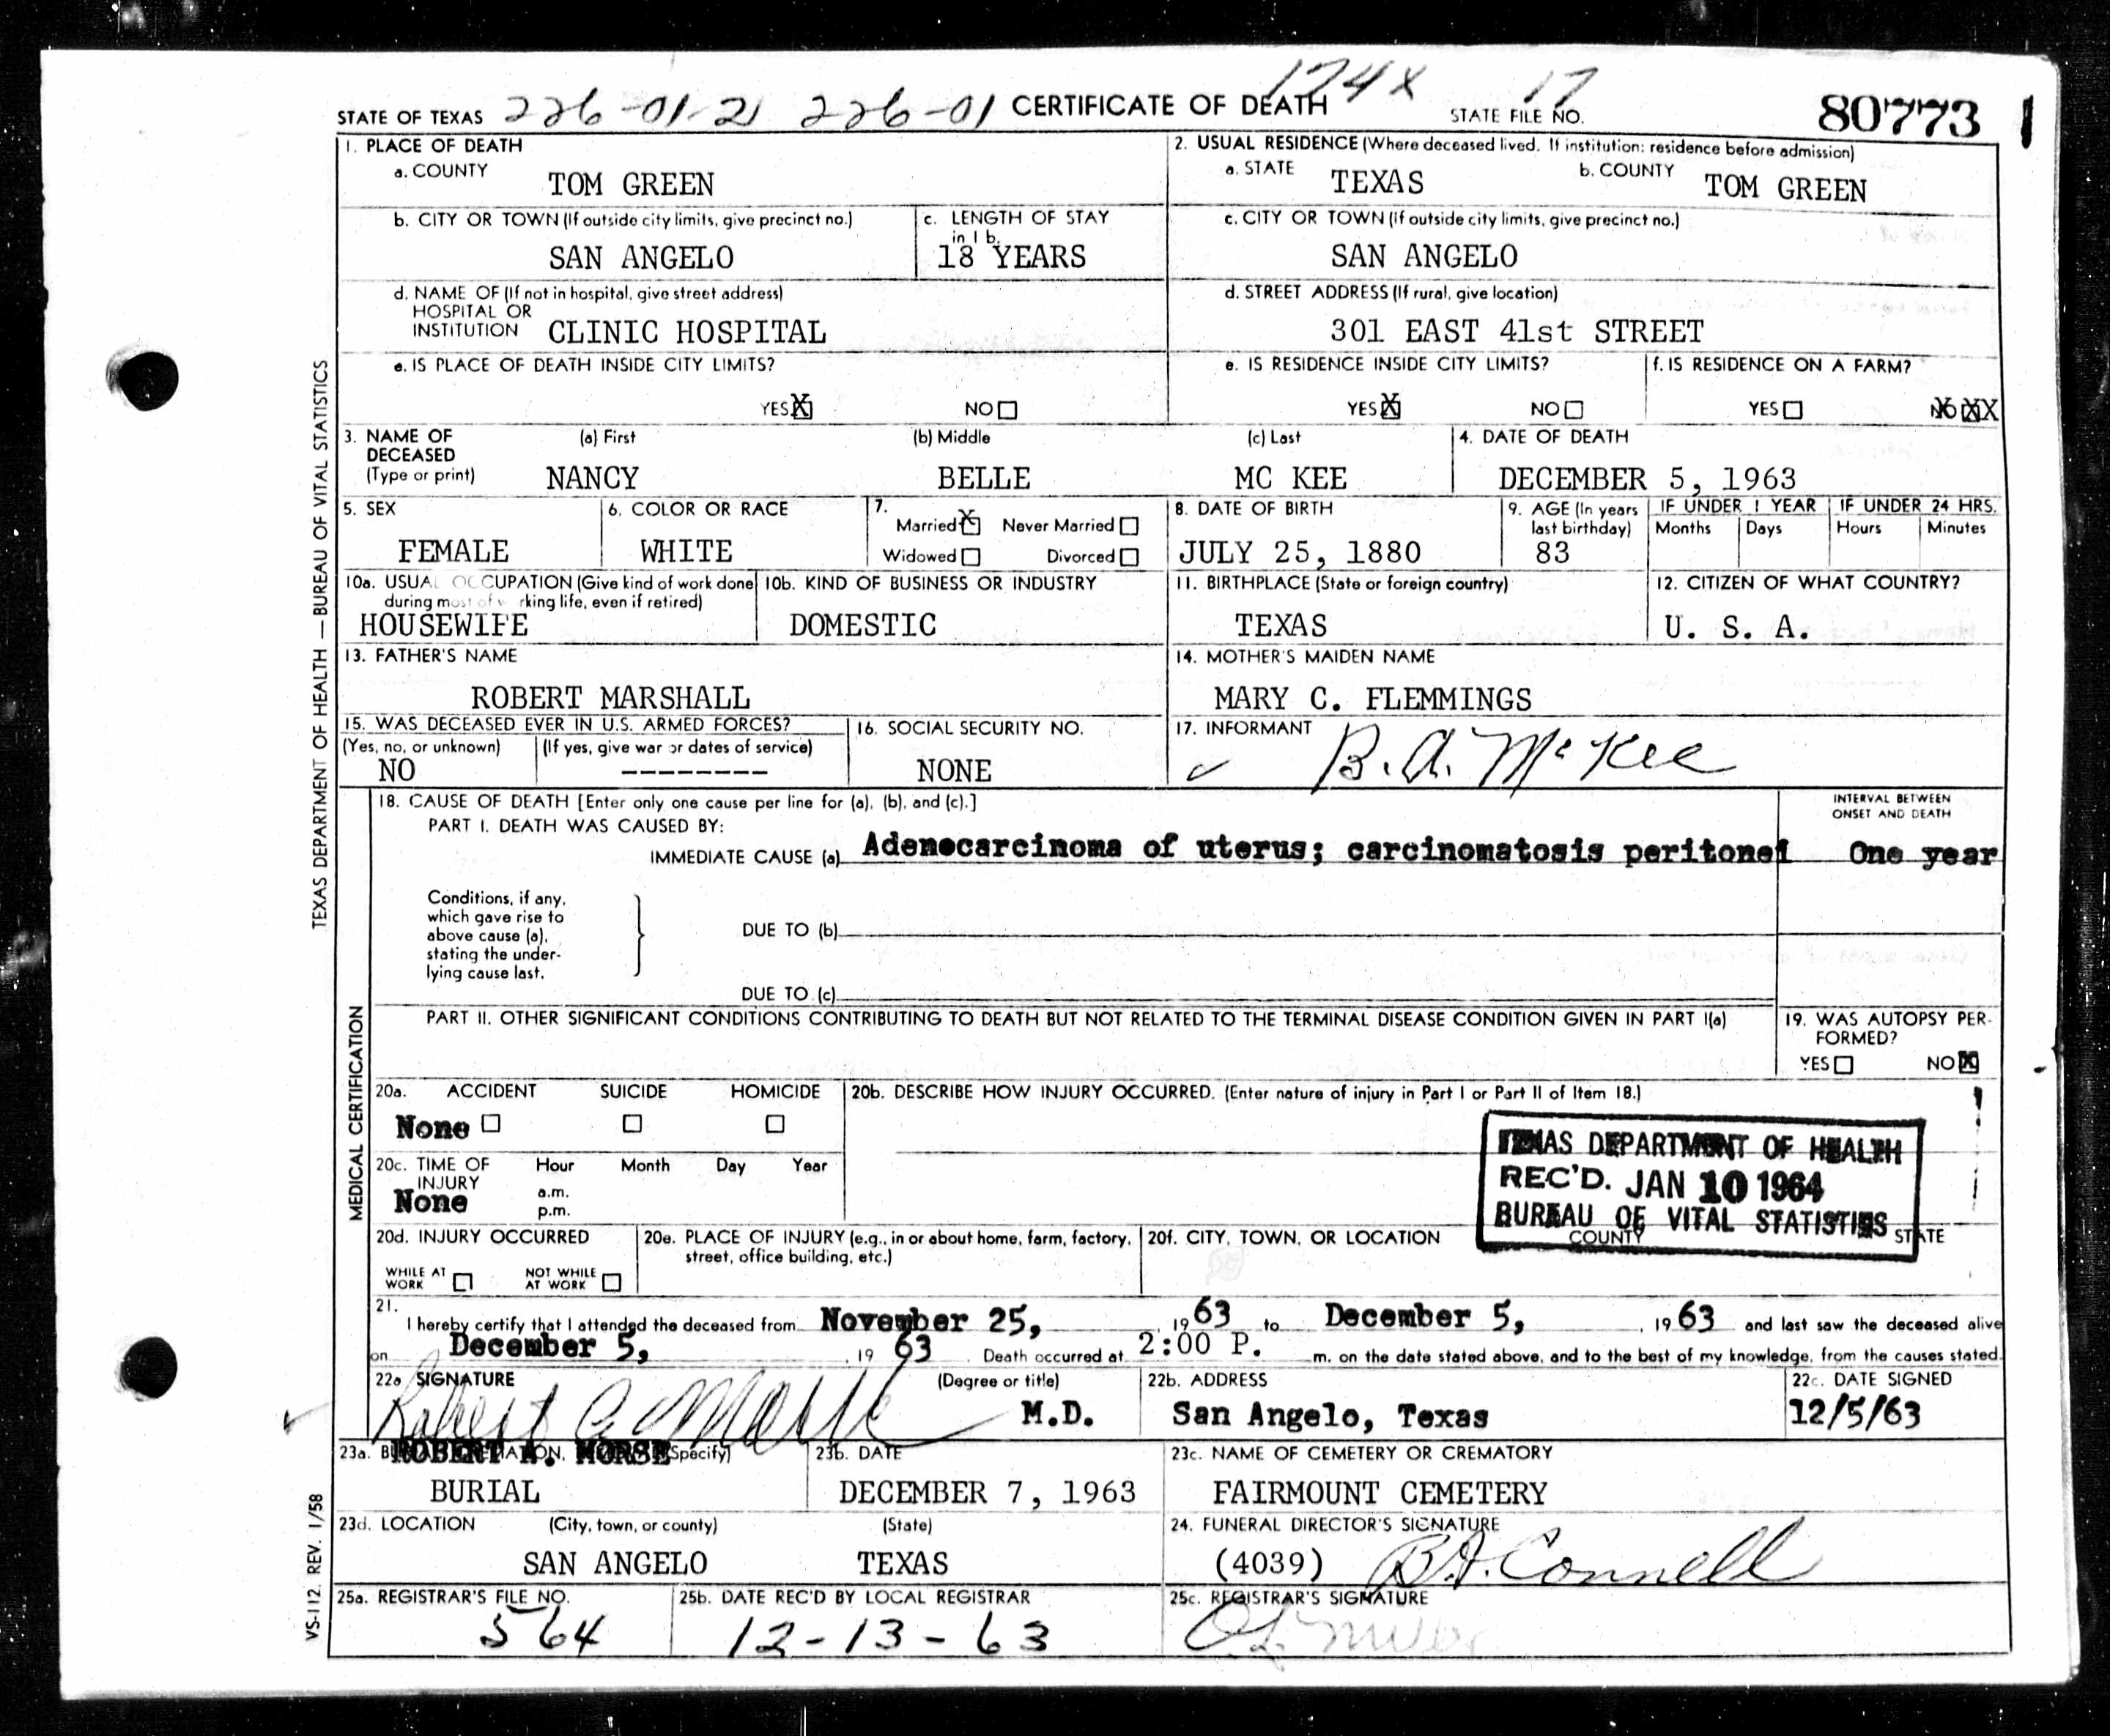 174X 17
STATE OF TEXAS 226-01-21 226-01 CERTIFICATE OF DEATH STATE FILE NO. 80773 1
1. PLACE OF DEATH
a. COUNTY TOM GREEN
2. USUAL RESIDENCE (Where deceased lived. If institution: residence before admission)
a. STATE TEXAS b. COUNTY TOM GREEN
b. CITY OR TOWN (If outside city limits, give precinct no.) SAN ANGELO
c. LENGTH OF STAY in 1 b. 18 YEARS
c. CITY OR TOWN (If outside city limits, give precinct no.) SAN ANGELO
d. NAME OF (If not in hospital, give street address)
HOSPITAL OR
INSTITUTION CLINIC HOSPITAL
d. STREET ADDRESS (If rural, give location)
301 EAST 41st STREET
e. IS PLACE OF DEATH INSIDE CITY LIMITS?
YES X NO
e. IS RESIDENCE INSIDE CITY LIMITS?
YES X NO
f. IS RESIDENCE ON A FARM?
YES NO XXX
3. NAME OF DECEASED (Type or print)
(a) First NANCY
(b) Middle BELLE
(c) Last MC KEE
4. DATE OF DEATH
DECEMBER 5, 1963
5. SEX FEMALE
6. COLOR OR RACE WHITE
7. Married X Never Married
Widowed Divorced
8. DATE OF BIRTH JULY 25, 1880
9. AGE (In years last birthday) 83
IF UNDER 1 YEAR Months Days
IF UNDER 24 HRS. Hours Minutes
10a. USUAL OCCUPATION (Give kind of work done during most of working life, even if retired)
HOUSEWIFE
10b. KIND OF BUSINESS OR INDUSTRY
DOMESTIC
11. BIRTHPLACE (State or foreign country)
TEXAS
12. CITIZEN OF WHAT COUNTRY?
U. S. A.
13. FATHER'S NAME
ROBERT MARSHALL
14. MOTHER'S MAIDEN NAME
MARY C. FLEMMINGS
15. WAS DECEASED EVER IN U.S. ARMED FORCES?
(Yes, no, or unknown) (If yes, give war or dates of service)
NO --------
16. SOCIAL SECURITY NO.
NONE
17. INFORMANT
✓ B. A. McKee
18. CAUSE OF DEATH [Enter only one cause per line for (a), (b), and (c).]
PART I. DEATH WAS CAUSED BY:
INTERVAL BETWEEN ONSET AND DEATH
IMMEDIATE CAUSE (a) Adenocarcinoma of uterus; carcinomatosis peritonei One year
Conditions, if any,
which gave rise to
above cause (a),
stating the under-
lying cause last.
DUE TO (b)
DUE TO (c)
PART II. OTHER SIGNIFICANT CONDITIONS CONTRIBUTING TO DEATH BUT NOT RELATED TO THE TERMINAL DISEASE CONDITION GIVEN IN PART I(a)
19. WAS AUTOPSY PER-
FORMED?
YES NO X
20a. ACCIDENT SUICIDE HOMICIDE
None
20b. DESCRIBE HOW INJURY OCCURRED. (Enter nature of injury in Part I or Part II of Item 18.)
20c. TIME OF INJURY Hour Month Day Year
None a.m.
p.m.
TEXAS DEPARTMENT OF HEALTH
REC'D. JAN 10 1964
BUREAU OF VITAL STATISTICS
20d. INJURY OCCURRED
WHILE AT WORK NOT WHILE AT WORK
20e. PLACE OF INJURY (e.g., in or about home, farm, factory,
street, office building, etc.)
20f. CITY, TOWN, OR LOCATION COUNTY STATE
21. I hereby certify that I attended the deceased from November 25, 1963 to December 5, 1963 and last saw the deceased alive
on December 5, 19 63. Death occurred at 2:00 P. m. on the date stated above, and to the best of my knowledge, from the causes stated.
22a. SIGNATURE (Degree or title)
Robert A. Morse M.D.
22b. ADDRESS
San Angelo, Texas
22c. DATE SIGNED
12/5/63
ROBERT A. MORSE
23a. (Specify)
BURIAL
23b. DATE
DECEMBER 7, 1963
23c. NAME OF CEMETERY OR CREMATORY
FAIRMOUNT CEMETERY
23d. LOCATION (City, town, or county) (State)
SAN ANGELO TEXAS
24. FUNERAL DIRECTOR'S SIGNATURE
(4039) B. A. Connell
25a. REGISTRAR'S FILE NO.
564
25b. DATE REC'D BY LOCAL REGISTRAR
12-13-63
25c. REGISTRAR'S SIGNATURE
TEXAS DEPARTMENT OF HEALTH — BUREAU OF VITAL STATISTICS
MEDICAL CERTIFICATION
VS-112. REV. 1/58